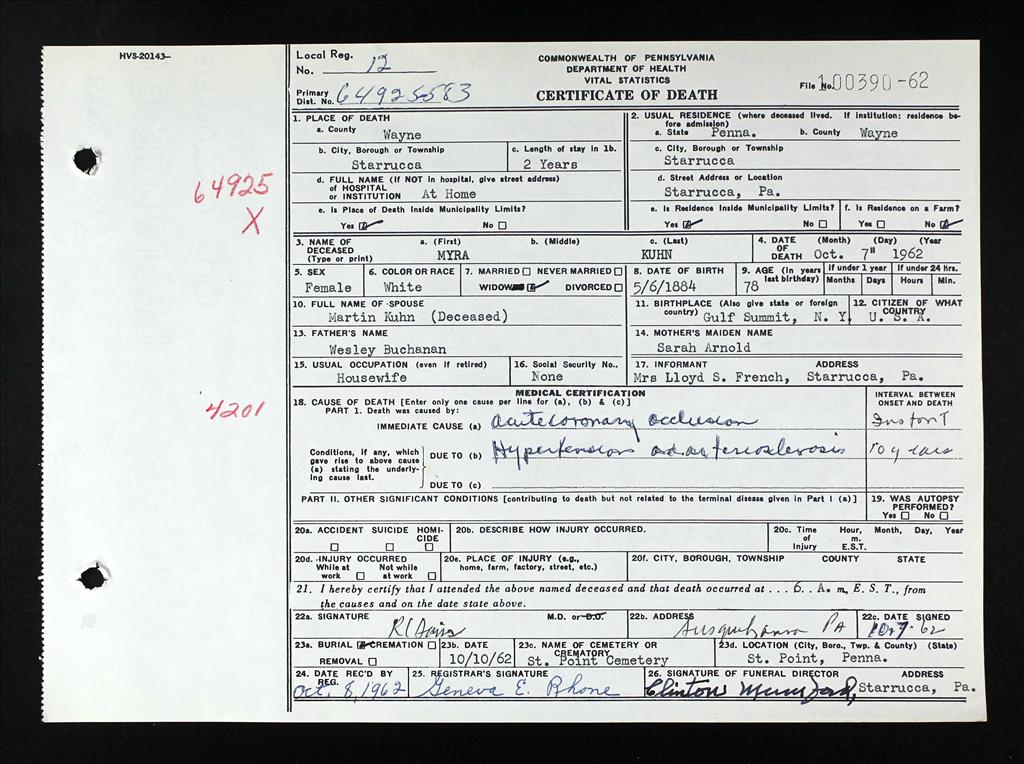 HVS-20143
Local Reg. No. 12
COMMONWEALTH OF PENNSYLVANIA
DEPARTMENT OF HEALTH
VITAL STATISTICS
CERTIFICATE OF DEATH
File No. 100390-62
Primary Dist. No. 64925-583
64925
X
1. PLACE OF DEATH
a. County Wayne
b. City, Borough or Township Starrucca
c. Length of stay in 1b. 2 Years
d. FULL NAME (If NOT in hospital, give street address) of HOSPITAL or INSTITUTION At Home
e. Is Place of Death Inside Municipality Limits? Yes No
2. USUAL RESIDENCE (where deceased lived. If institution: residence before admission)
a. State Penna. b. County Wayne
c. City, Borough or Township Starrucca
d. Street Address or Location Starrucca, Pa.
e. Is Residence Inside Municipality Limits? Yes No
f. Is Residence on a Farm? Yes No
3. NAME OF DECEASED (Type or print)
a. (First) MYRA b. (Middle) c. (Last) KUHN
4. DATE OF DEATH (Month) (Day) (Year Oct. 7" 1962
5. SEX Female
6. COLOR OR RACE White
7. MARRIED NEVER MARRIED
WIDOW DIVORCED
8. DATE OF BIRTH 5/6/1884
9. AGE (in years last birthday) 78
If under 1 year Months Days
If under 24 Hrs. Hours Min.
10. FULL NAME OF SPOUSE Martin Kuhn (Deceased)
11. BIRTHPLACE (Also give state or foreign country) Gulf Summit, N. Y.
12. CITIZEN OF WHAT COUNTRY U. S. A.
13. FATHER'S NAME Wesley Buchanan
14. MOTHER'S MAIDEN NAME Sarah Arnold
15. USUAL OCCUPATION (even if retired) Housewife
16. Social Security No.. None
17. INFORMANT ADDRESS Mrs Lloyd S. French, Starrucca, Pa.
4201
MEDICAL CERTIFICATION
18. CAUSE OF DEATH [Enter only one cause per line for (a), (b) & (c)]
PART 1. Death was caused by:
INTERVAL BETWEEN ONSET AND DEATH
IMMEDIATE CAUSE (a) Acute coronary occlusion Instant
Conditions, if any, which gave rise to above cause (a) stating the underlying cause last.
DUE TO (b) Hypertension and arteriosclerosis 10 years
DUE TO (c)
PART II. OTHER SIGNIFICANT CONDITIONS [contributing to death but not related to the terminal disease given in Part I (a)]
19. WAS AUTOPSY PERFORMED? Yes No
20a. ACCIDENT SUICIDE HOMICIDE
20b. DESCRIBE HOW INJURY OCCURRED.
20c. Time of Injury Hour, m. E.S.T. Month, Day, Year
20d. INJURY OCCURRED While at work Not while at work
20e. PLACE OF INJURY (e.g., home, farm, factory, street, etc.)
20f. CITY, BOROUGH, TOWNSHIP COUNTY STATE
21. I hereby certify that I attended the above named deceased and that death occurred at ... 6. A. m, E. S. T., from
the causes and on the date state above.
22a. SIGNATURE M.D. or D.O. R C Davis
22b. ADDRESS Susquehanna PA
22c. DATE SIGNED 10-7-62
23a. BURIAL CREMATION REMOVAL
23b. DATE 10/10/62
23c. NAME OF CEMETERY OR CREMATORY St. Point Cemetery
23d. LOCATION (City, Boro., Twp. & County) (State) St. Point, Penna.
24. DATE REC'D BY REG. Oct. 8, 1962
25. REGISTRAR'S SIGNATURE Geneva E. Rhone
26. SIGNATURE OF FUNERAL DIRECTOR ADDRESS Clinton Mumford, Starrucca, Pa.